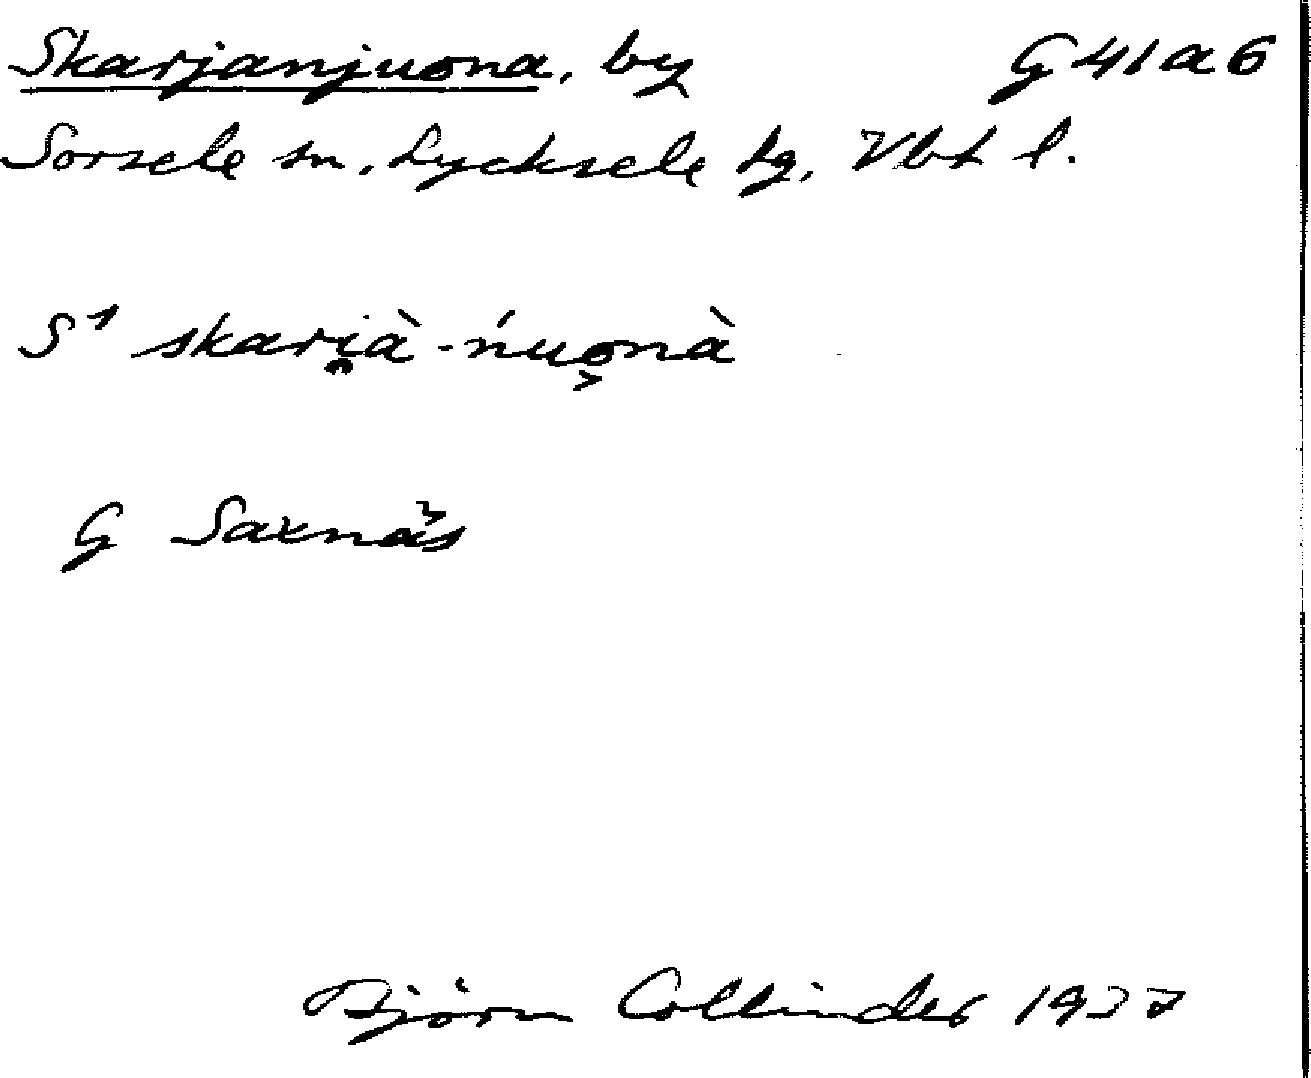 Skarjanjuona, by G 41 a 6
Sorsele sn, Lycksele lg, Vbt l.
S¹ skari̯à-ńuo̬nà
G Saxnäs
Björn Collinder 1937